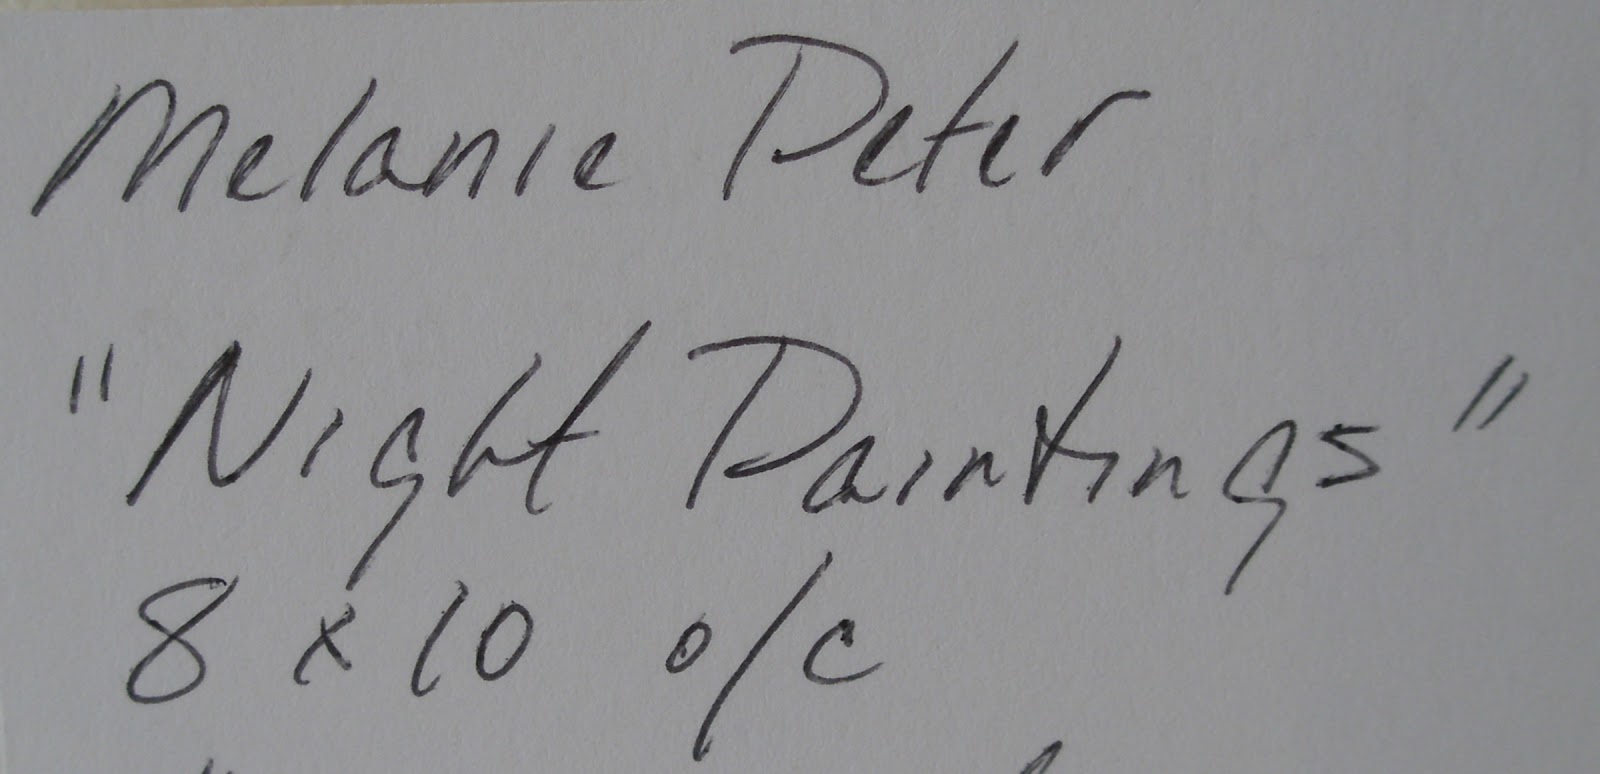 Melanie Peter
"Night Paintings"
8 x 10 o/c